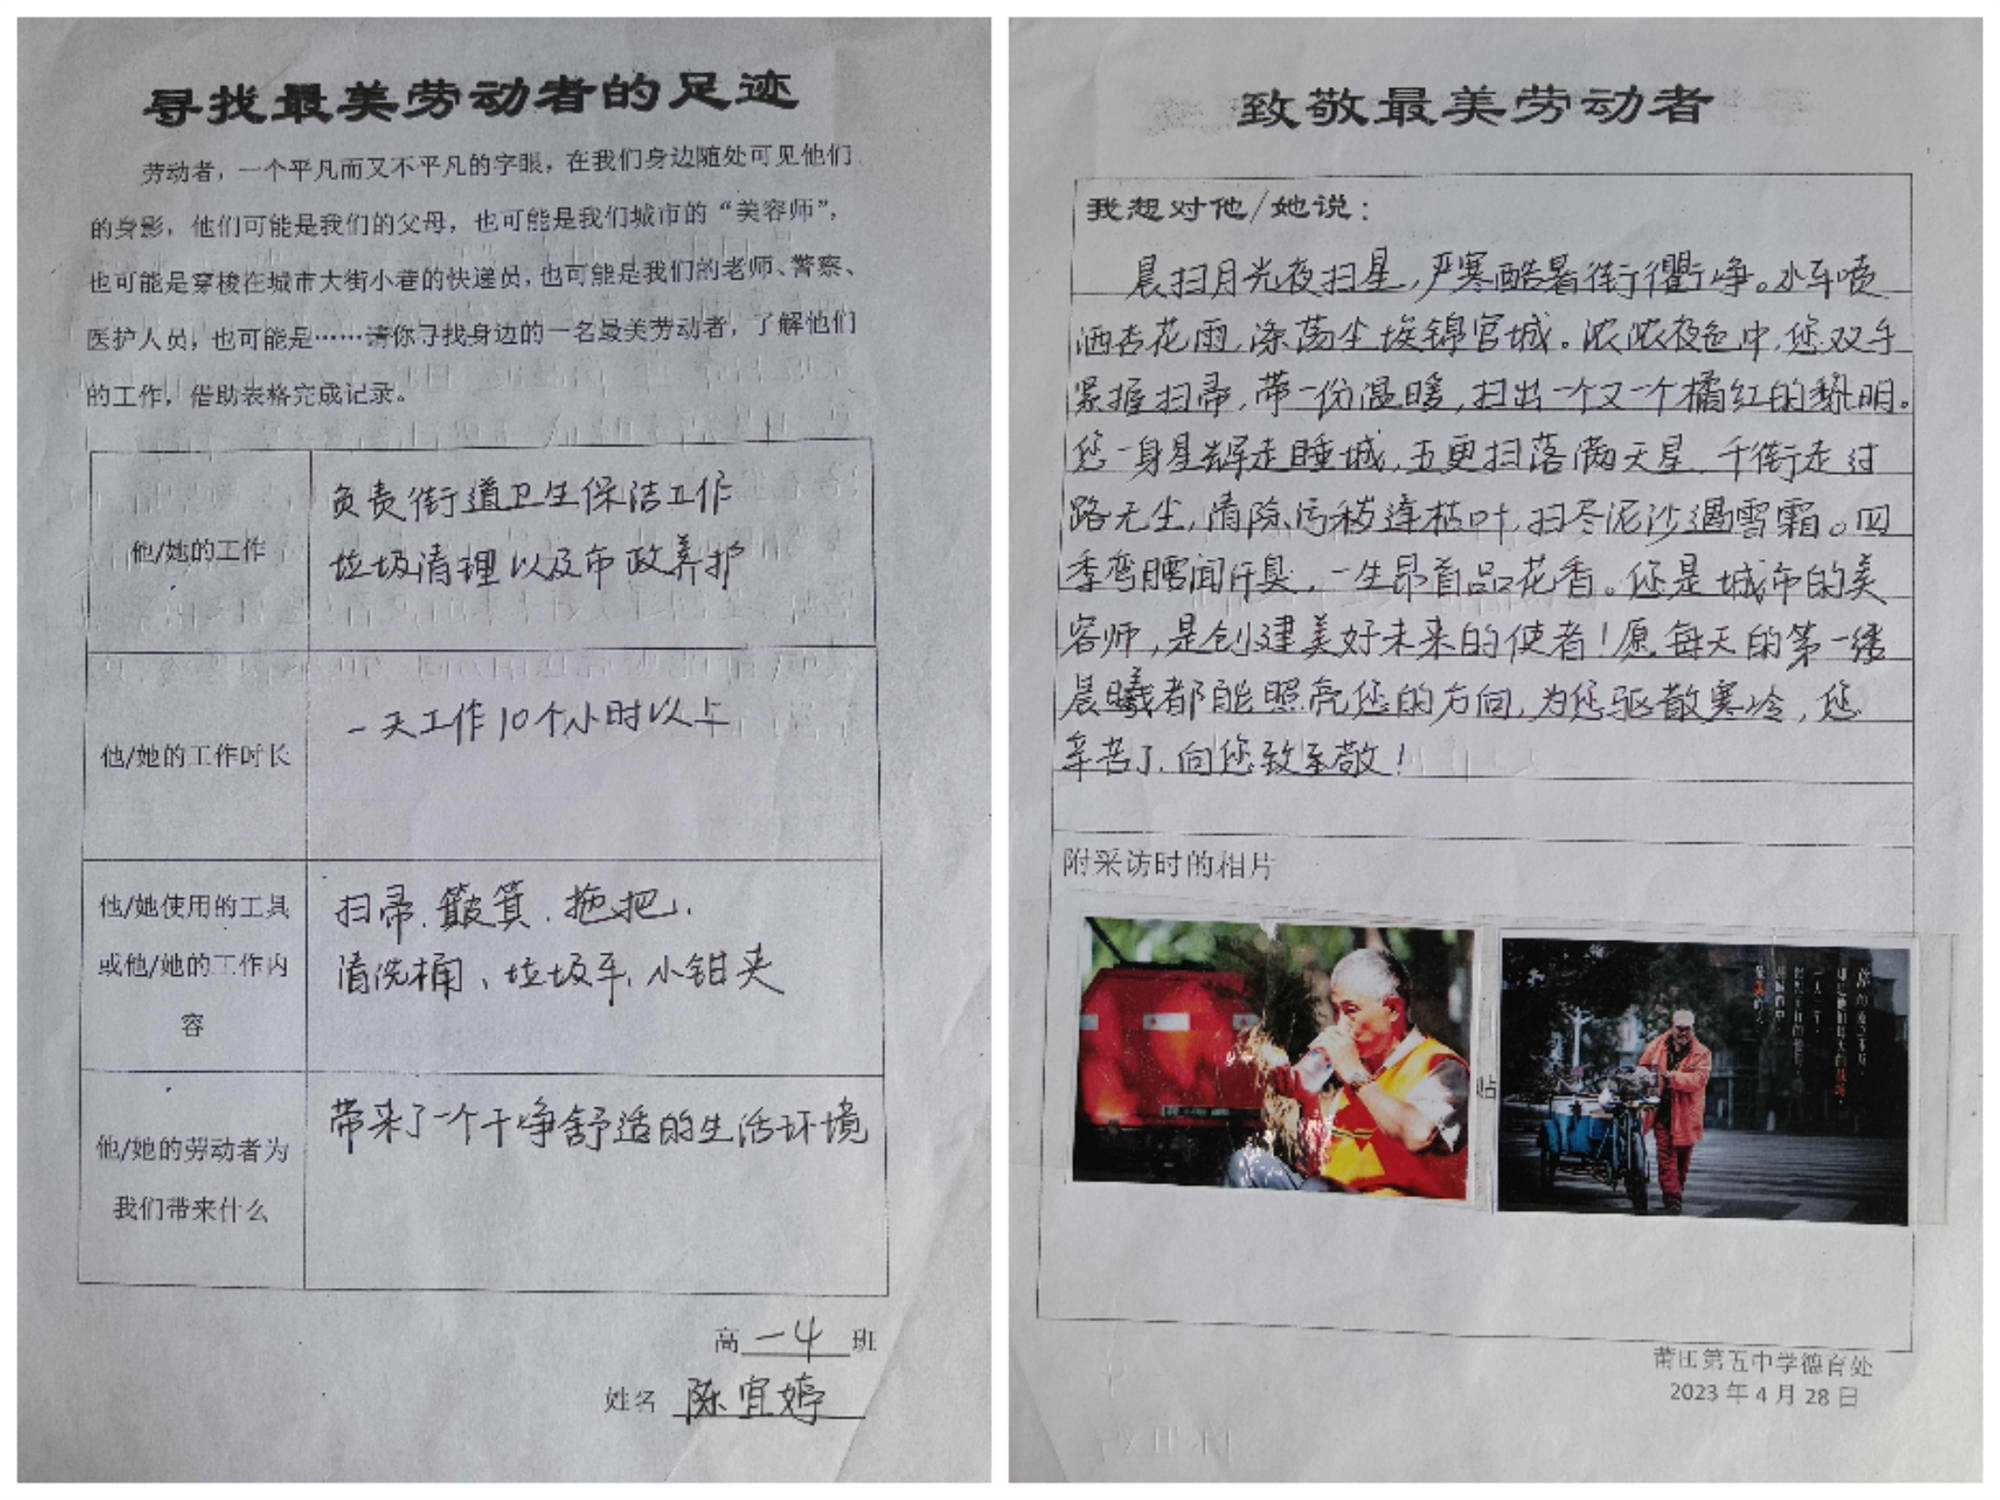 寻找最美劳动者的足迹
劳动者，一个平凡而又不平凡的字眼，在我们身边随处可见他们
的身影，他们可能是我们的父母，也可能是我们城市的“美容师”，
也可能是穿梭在城市大街小巷的快递员，也可能是我们的老师、警察、
医护人员，也可能是……请你寻找身边的一名最美劳动者，了解他们
的工作，借助表格完成记录。
他/她的工作
负责街道卫生保洁工作
垃圾清理以及市政养护
他/她的工作时长
一天工作10个小时以上
他/她使用的工具
或他/她的工作内
容
扫帚、簸箕、拖把、
清洗桶、垃圾车、小钳夹
他/她的劳动者为
我们带来什么
带来了一个干净舒适的生活环境
高一4班
姓名 陈宜婷
致敬最美劳动者
我想对他/她说：
晨扫月光夜扫星，严寒酷暑街衢净。水车喷
洒杏花雨，涤荡尘埃锦官城。浓浓夜色中，您双手
紧握扫帚，带一份温暖，扫出一个又一个橘红的黎明。
您一身星辉走睡城，五更扫落满天星，千街走过
路无尘，清除污秽连枯叶，扫尽泥沙遇雪霜。四
季弯腰闻汗臭，一生昂首品花香。您是城市的美
容师，是创建美好未来的使者！愿每天的第一缕
晨曦都能照亮您的方向，为您驱散寒冷，您
辛苦了，向您致至敬！
附采访时的相片
贴
莆田第五中学德育处
2023年4月28日